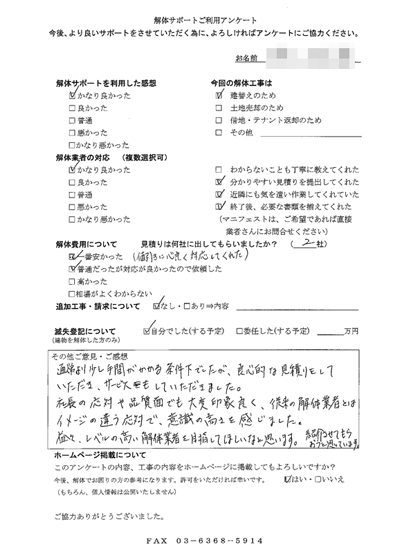 解体サポートご利用アンケート
今後、より良いサポートをさせていただく為に、よろしければアンケートにご協力ください。
お名前
解体サポートを利用した感想
☑かなり良かった
□良かった
□普通
□悪かった
□かなり悪かった
今回の解体工事は
☑建替えのため
□土地売却のため
□借地・テナント返却のため
□その他
解体業者の対応 (複数選択可)
☑かなり良かった
□良かった
□普通
□悪かった
□かなり悪かった
□わからないことも丁寧に教えてくれた
☑分かりやすい見積りを提出してくれた
☑近隣にも気を遣い作業してくれていた
☑終了後、必要な書類を揃えてくれた
(マニフェストは、ご希望であれば直接
業者さんにお問合せください)
解体費用について 見積りは何社に出してもらいましたか? (2社)
☑一番安かった (値引きに心良く対応してくれた)
☑普通だったが対応が良かったので依頼した
□高かった
□相場がよくわからない
追加工事・請求について ☑なし・□あり⇒内容
滅失登記について ☑自分でした(する予定) □委任した(する予定) 万円
(建物を解体した方のみ)
その他ご意見・ご感想
通常より少し手間がかかる条件下でしたが、良心的な見積りをして
いただき、サービスもしていただきました。
社長の応対や品質面でも大変印象良く、従来の解体業者とは
イメージの違う応対で、意識の高さを感じました。
レベルの高い解体業者を目指してほしいなと思います。
紹介させてもらおうと思っています。
ホームページ掲載について
このアンケートの内容、工事の内容をホームページに掲載してもよろしいですか?
今後、解体でお困りの方の参考になります。許可をいただければ幸いです。 ☑はい・□いいえ
(もちろん、個人情報は公開いたしません)
ご協力ありがとうございました。
FAX 03-6368-5914